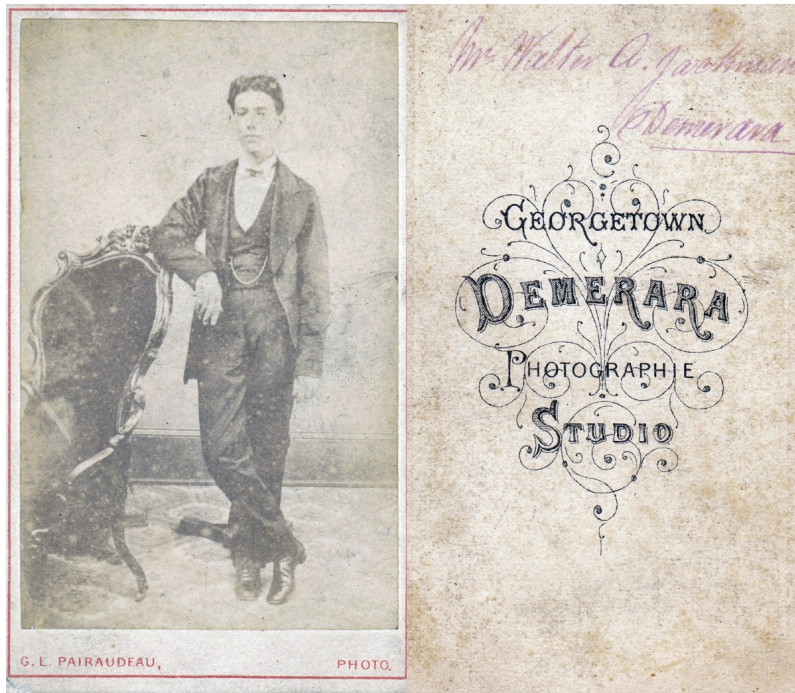 G. L. PAIRAUDEAU,
PHOTO.
Mr Walter A. Jackman
Demerara
GEORGETOWN
DEMERARA
PHOTOGRAPHIE
STUDIO